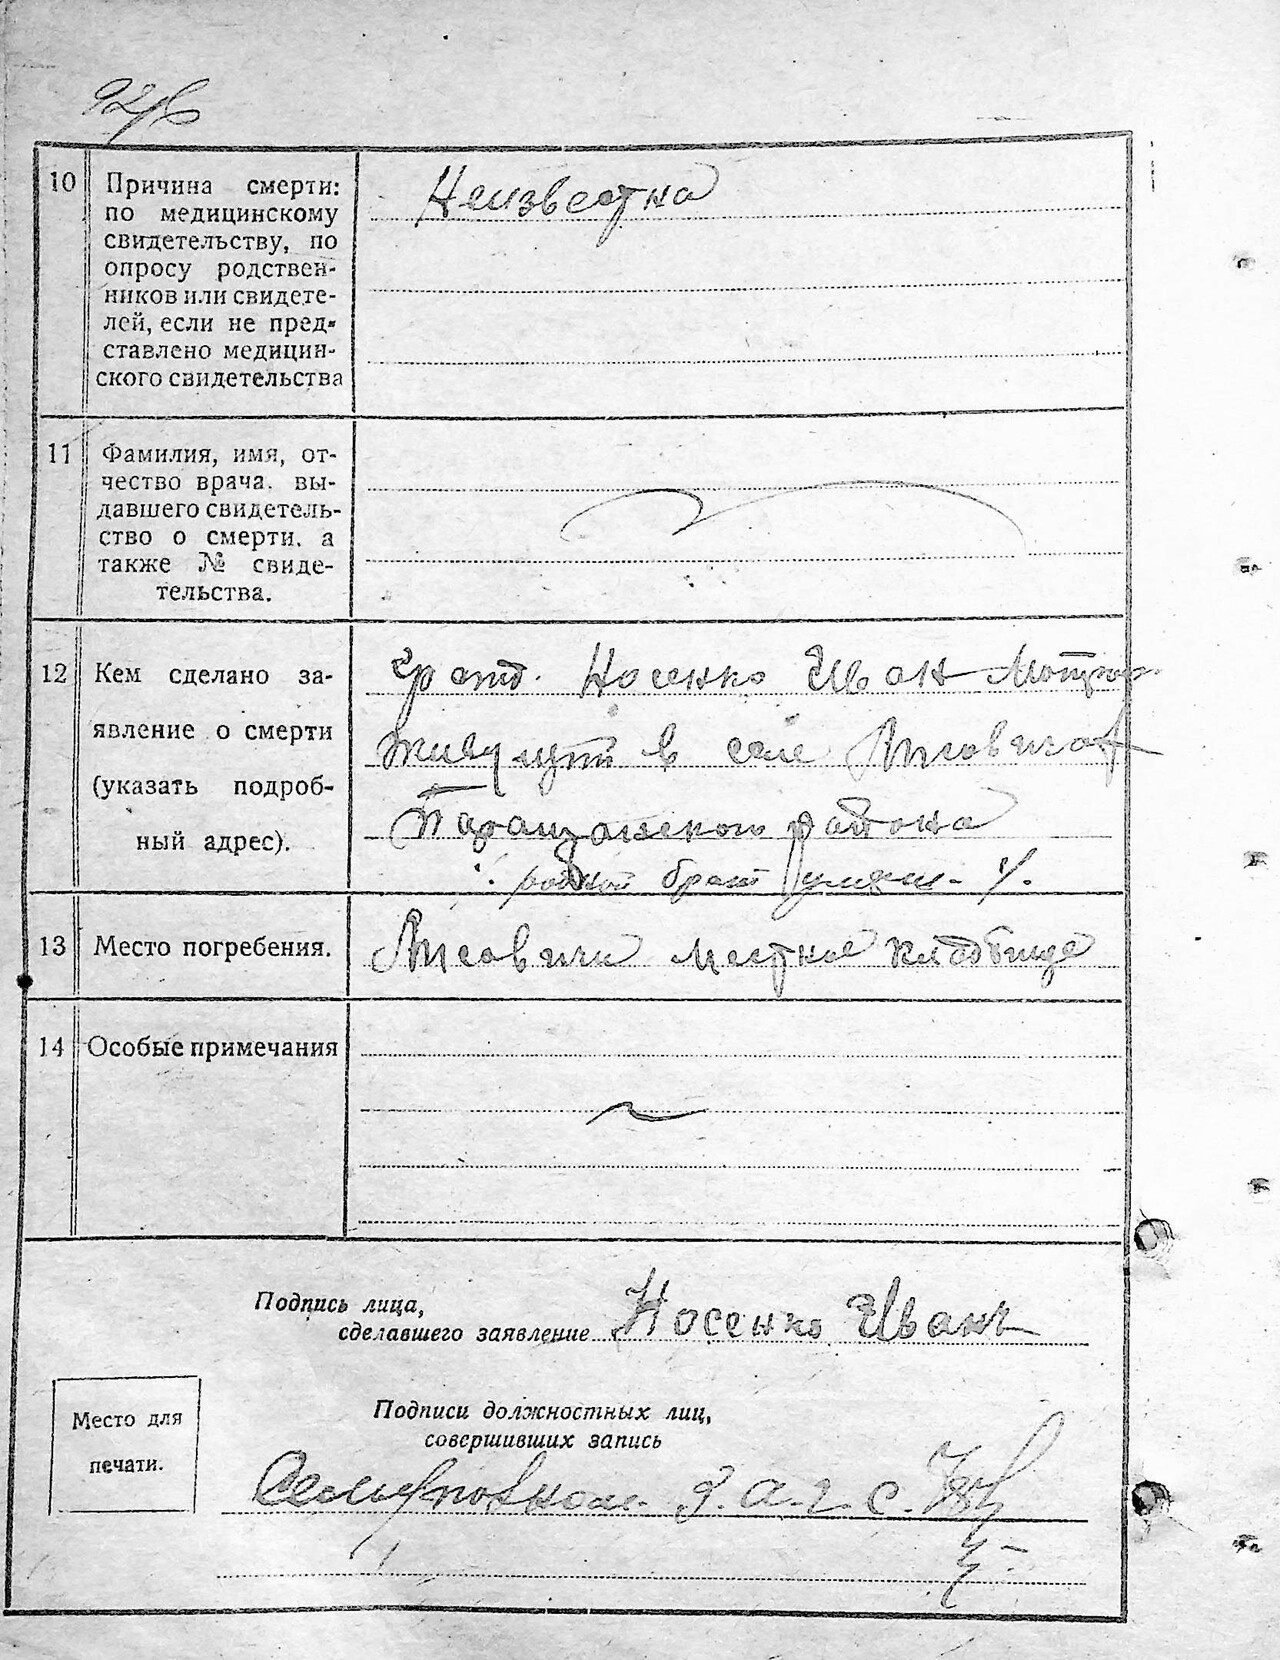 10 Причина смерти: Неизвестна
по медицинскому
свидетельству, по
опросу родствен-
ников или свидете-
лей, если не пред-
ставлено медицин-
ского свидетельства
11 Фамилия, имя, от-
чество врача, вы-
давшего свидетель-
ство о смерти, а
также № свиде-
тельства.
12 Кем сделано за-
явление о смерти
(указать подроб-
ный адрес).
Носенко Иван
в селе Лисовичах
Таращанского района
родной брат
13 Место погребения. Лисовичи местное кладбище
14 Особые примечания
Подпись лица,
сделавшего заявление Носенко Иван
Место для
печати.
Подписи должностных лиц,
совершивших запись